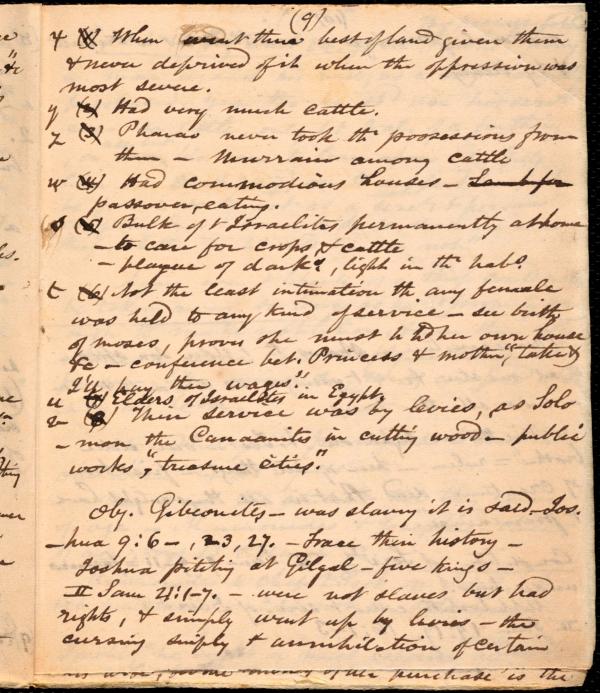 (9)
x (1) When went there best of land given them
& never deprived of it when the oppression was
most severe.
y (2) Had very much cattle.
z (3) Pharao never took the possessions from
them – Murrain among cattle
w (4) Had commodious houses – Lamb for
passover, eating.
s (5) Bulk of t Israelites permanently at home
– to care for crops & cattle
– plague of dark, light in th hab.
t (6) Not the least intimation th. any female
was held to any kind of service – see birth
of moses, proves she must h hd her own house
&c – conference bet. Princess & mother, "take &
I'll pay thee wages."
u (7) Elders of Israelites in Egypt.
v (8) Their service was by levies, as Solo
-mon the Canaanites in cutting wood – public
works, "treasure cities".
Obj. Gibeonites – was slavery it is said – Jos-
-hua 9:6 –, 23, 27. – Trace their history –
Joshua pitching at Gilgal – five kings –
II Sam 21:1-7. – were not slaves but had
rights, & simply went up by levies – the
cursing simply t annihilation of certain
purchase is the